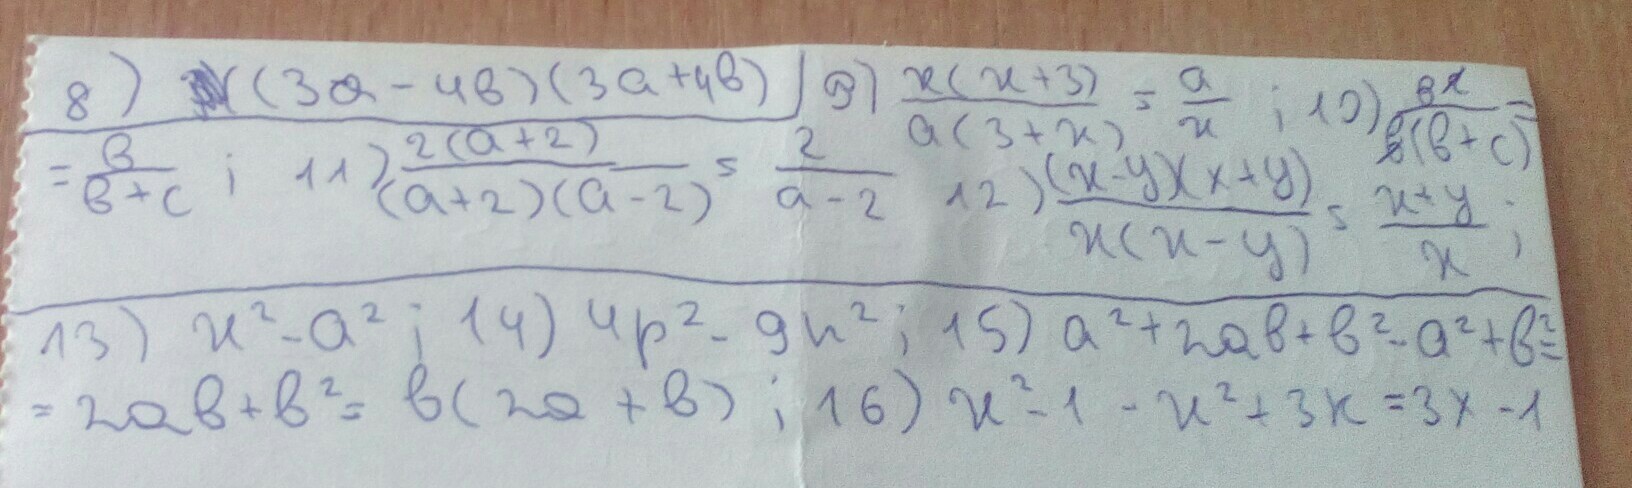 8) (3a-4в)(3a+4в) 9) x(x+3)/a(3+x) = a/x ; 10) вx/в(в+c) =
= в/в+c ; 11) 2(a+2)/(a+2)(a-2) = 2/a-2 12) (x-y)(x+y)/x(x-y) = x+y/x ;
13) x²-a² ; 14) 4p²-9n² ; 15) a²+2aв+в²-a²+в²=
=2aв+в²= в(2a+в) ; 16) x²-1-x²+3x=3x-1